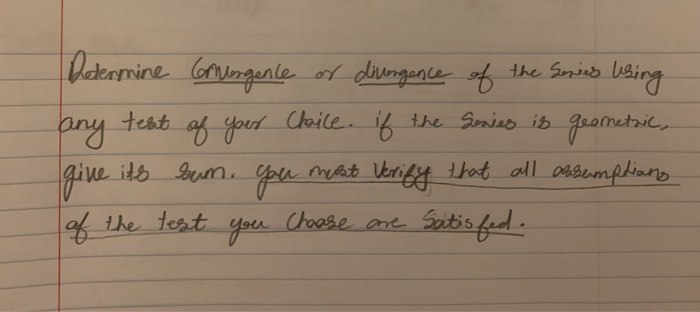 Determine Convergence or divergence of the Series Using
any test of your Choice. if the Series is geometric,
give its sum. you must Verify that all assumptions
of the test you Choose are Satisfied.